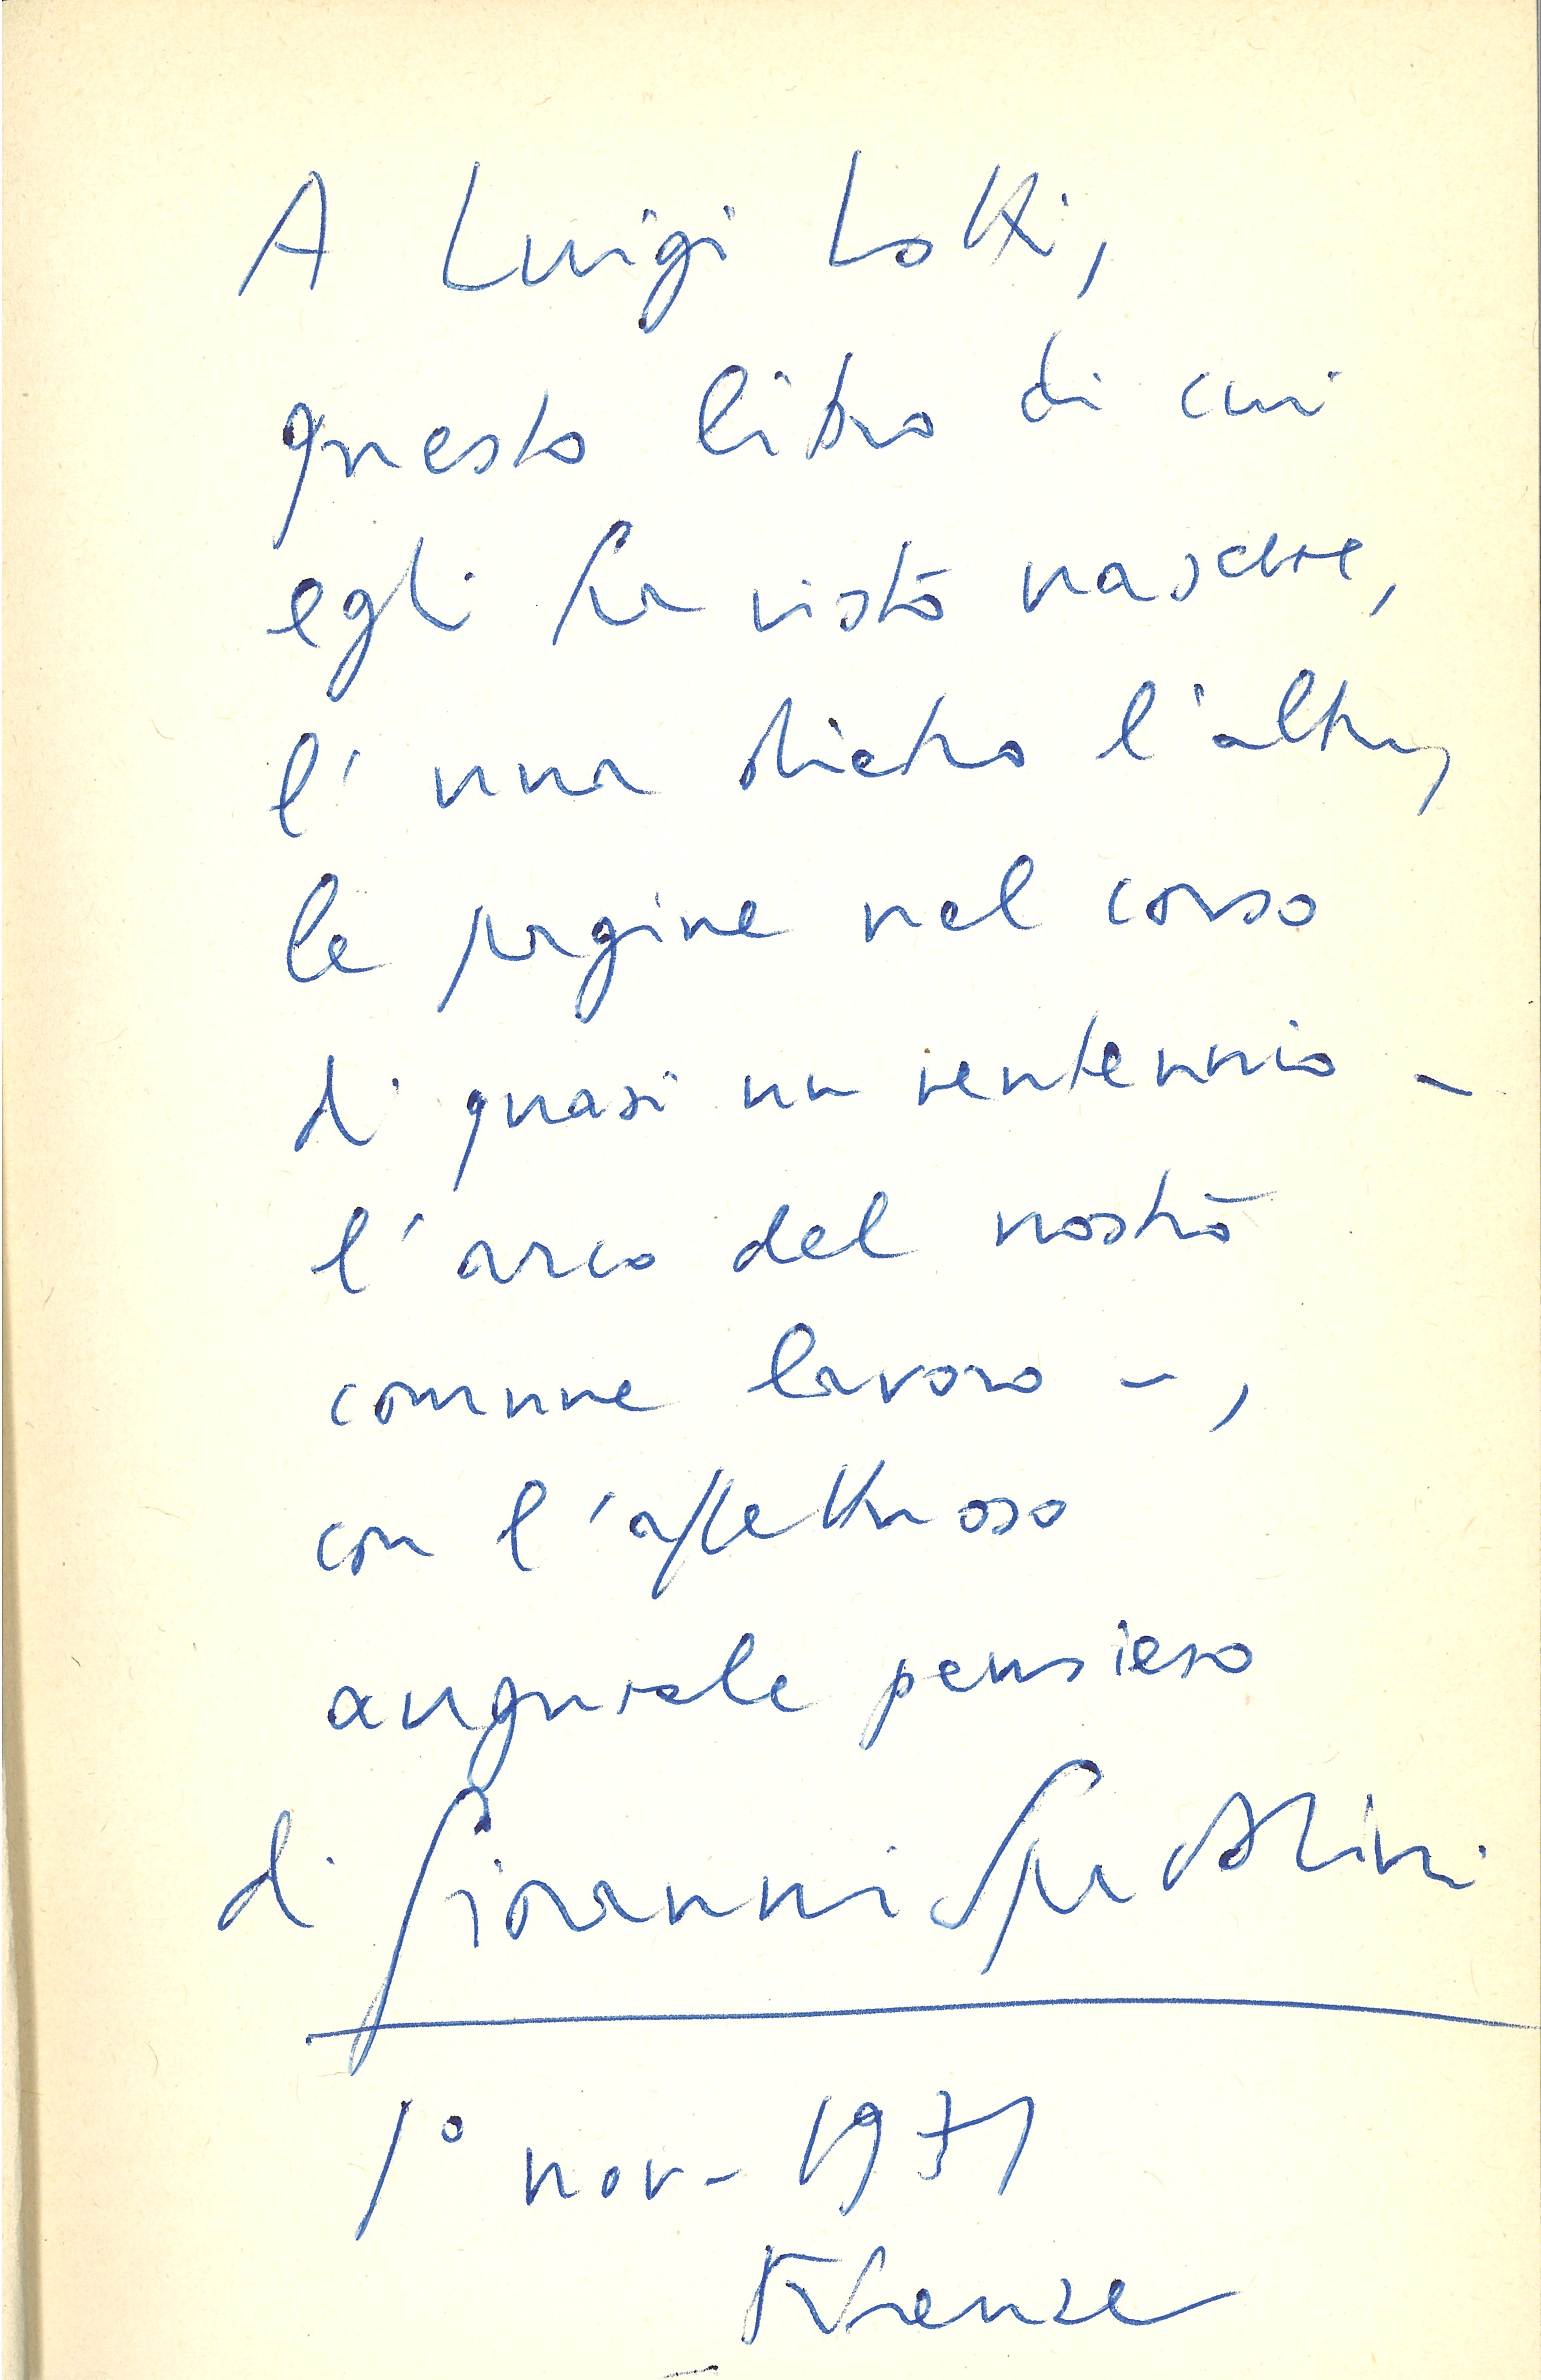 A Luigi Lotti,
questo libro di cui
egli ha visto nascere,
l'una dietro l'altra,
le pagine nel corso
di quasi un ventennio -
l'arco del nostro
comune lavoro -,
con l'affettuoso
augurale pensiero
di Giovanni Spadolini
1° nov- 1971
Firenze